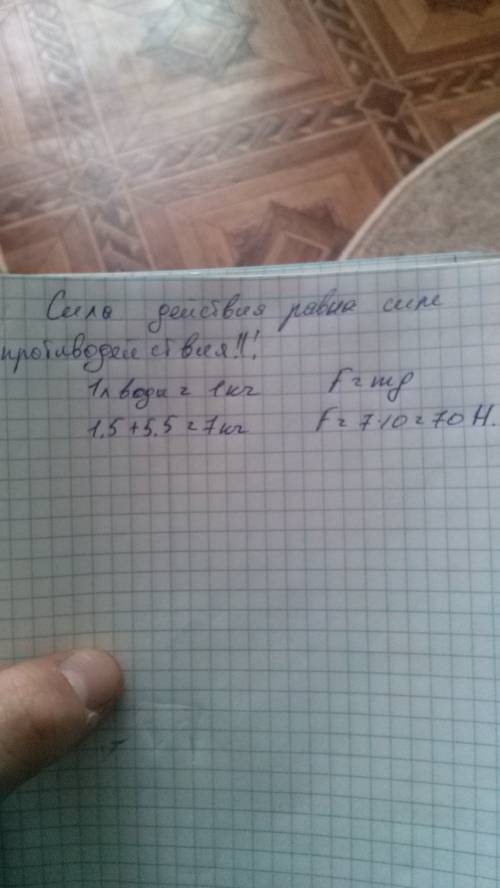 Сила действия равна силе
противодействия!!!
1л воды = 1кг F = mg
1.5+5.5 = 7кг F = 7·10 = 70 Н.